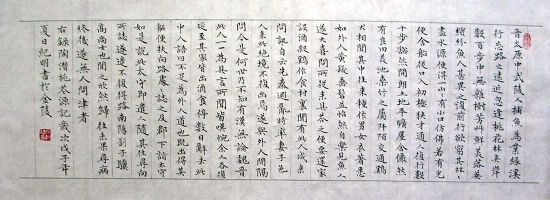 晋太原中武陵人捕魚為業緣溪
行忘路之遠近忽逢桃花林夾岸
數百步中無雜樹芳艸鮮美落英
繽紛魚人甚異之復前行欲窮其林林
盡水源便得一山山有小口仿佛若有光
便舍船從口入初極狹才通人復行數
十步豁然開朗土地平曠屋舍儼然
有良田美池桑竹之屬阡陌交通鷄
犬相聞其中往来種作男女衣著悉
如外人黄髮垂髫並怡然自樂見魚人
大驚問所從来具答之便要還家
設酒殺鷄作食村中聞有此人咸来
問訊自云先秦避亂時率妻子邑
人来此絶境不復出焉遂與外人間隔
問今是何世乃不知有漢無論魏晋
此人一一為具言所聞皆嘆惋余人各復
延至其家皆出酒食停數日辭去此
中人語曰不足為外人道也既出得其
船便扶向路處處誌之及郡下詣太守
如是説此太守即遣人隨其往尋向
所誌遂迷不復得路南陽劉子驥
高尚士也聞之欣然歸往未果尋病
終後遂無人問津者
右録陶潜桃花源記歲次戊子年
夏日紀明書於金陵